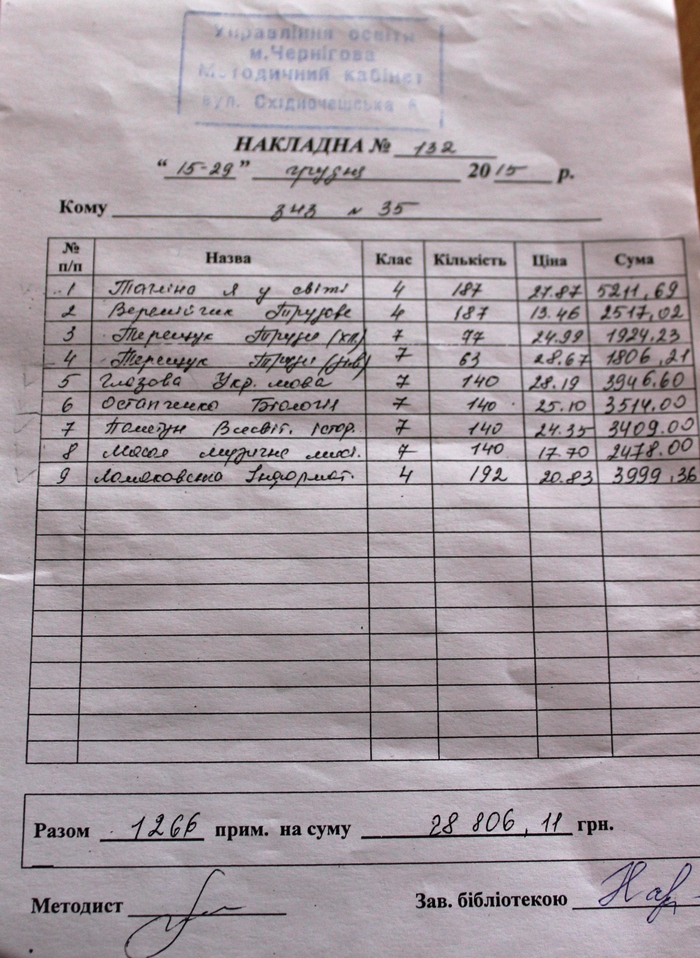 Управління освіти
м.Чернігова
Методичний кабінет
вул. Східночешська
НАКЛАДНА № 132
“ 15-29 ” грудня 2015 р.
Кому ЗНЗ № 35
№ п/п Назва Клас Кількість Ціна Сума
1 Тагліна Я у світі 4 187 27.87 5211,69
2 Веремійчик Трудове 4 187 13.46 2517,02
3 Терещук Трудові (хл) 7 77 24.99 1924,23
4 Терещук Трудові (дів) 7 63 28.67 1806,21
5 Глазова Укр. мова 7 140 28.19 3946.60
6 Остапченко Біологія 7 140 25.10 3514.00
7 Пометун Всесвіт. істор. 7 140 24.35 3409.00
8 Масол музичне мист. 7 140 17.70 2478.00
9 Ломаковська Інформат. 4 192 20.83 3999,36
Разом 1266 прим. на суму 28 806,11 грн.
Методист Зав. бібліотекою